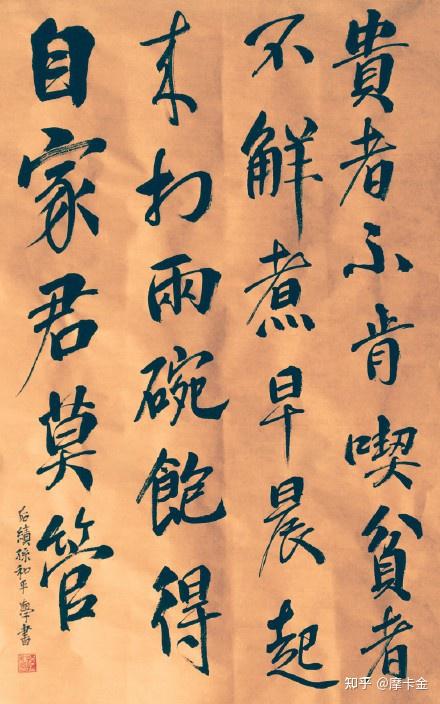 貴者不肯喫貧者
不觧煮早晨起
来打兩碗飽得
自家君莫管
孫和平學書
知乎 @摩卡金